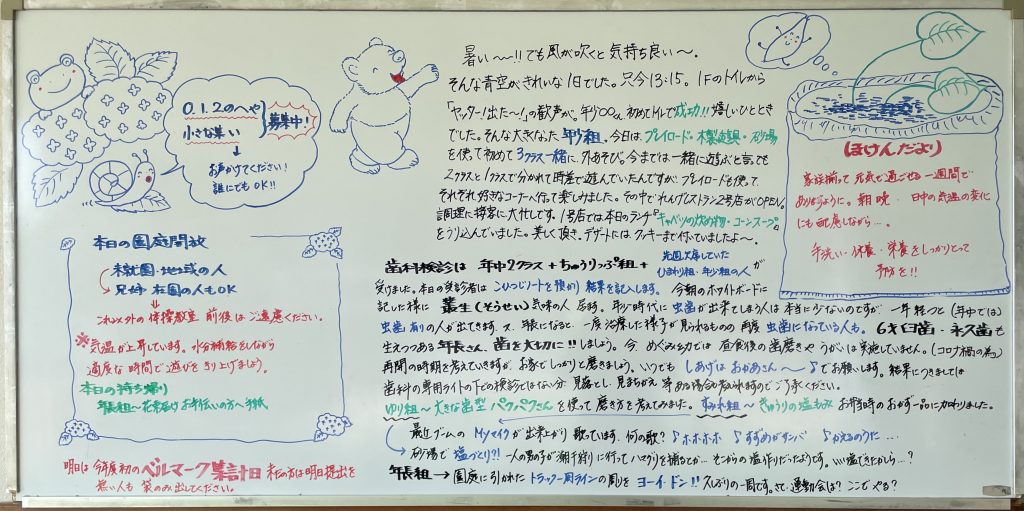 0.1.2のへや
小さな集い
募集中!
お声かけてください!
誰にでもOK!!
本日の園庭開放
未就園・地域の人
兄姉在園の人もOK
これ以外の体操教室前後はご遠慮ください。
※気温が上昇しています。水分補給をしながら
適度な時間で遊びをきり上げましょう。
本日の持ち帰り
年長組〜花を届けお手伝いの方へ手紙
明日は今年度初のベルマーク集計日 未だの方は明日提出を
無い人も袋のみ出してください。
暑い〜!!でも風が吹くと気持ち良い〜。
そんな青空がきれいな1日でした。只今13:15。1Fのトイレから
「ヤッター!出た〜!」の歓声が。年少○○さん初めてトイレで成功!!嬉しいひととき
でした。そんな大きくなった年少組。今日はプレイロード・木製遊具・砂場
を使って初めて3クラス一緒に外あそび。今までは一緒に遊ぶと言っても
2クラスと1クラスで分かれて時差で遊んでいたんですが、プレイロードも使って
それぞれ好きなコーナーへ行って楽しみました。その中でれんげレストラン2号店がOPEN。
調理に接客に大忙しです。1号店では本日のランチ『キャベツの炒め物・コーンスープ』
をうり込んでいました。美しく頂き、デザートにはクッキーまで付いていましたよ〜。
歯科検診は 年中2クラス+ちゅうりっぷ組+先週欠席していたひまわり組・年少組の人が
受けました。本日の受診者はこひつじノートを預かり結果を記入します。 今朝のホワイトボードに
記した様に叢生(そうせい)気味の人居ます。年少時代に虫歯が出来てしまう人は本当に少ないのですが、一年経つと(年中では)
虫歯有りの人が出てきます。又、年長になると、一度治療した様子が見られるものの再度虫歯になっている人も。6才臼歯・永久歯も
生えつつある年長さん、歯を大切に!!しましょう。今、めぐみ幼では昼食後の歯磨きやうがいは実施していません。(コロナ禍の為)
再開の時期を考えていきますが、お家でしっかりと磨きましょう。いつもしあげはおかあさん〜♪でお願いします。結果につきましては
歯科の専用ライトの下での検診ではない分 見落とし、見まちがえ等ある場合も考えられますのでご了承ください。
ゆり組〜大きな歯型パクパクさんを使って磨き方を考えてみました。すみれ組〜きゅうりの塩もみ お弁当時のおかず一品に加わりました。
最近ブームのMyマイクが出来上がり歌っています。何の歌?♪ホホホホ ♪すずめがサンバ ♪かえるのうた…
砂場で塩づくり?!一人の男子が潮干狩りに行ってハマグリを捕るとか…そこからの塩作りだったようです。いい塩できたかしら…?
年長組→園庭に引かれたトラック一周ラインの周りをヨーイ・ドン!!久しぶりの一周です。さて、運動会は?ここでやる?
ほけんだより
家族揃って元気で過ごせる一週間で
ありますように。朝晩・日中の気温の変化
にも配慮しながら…
手洗い・休養・栄養をしっかりとって
予防を!!